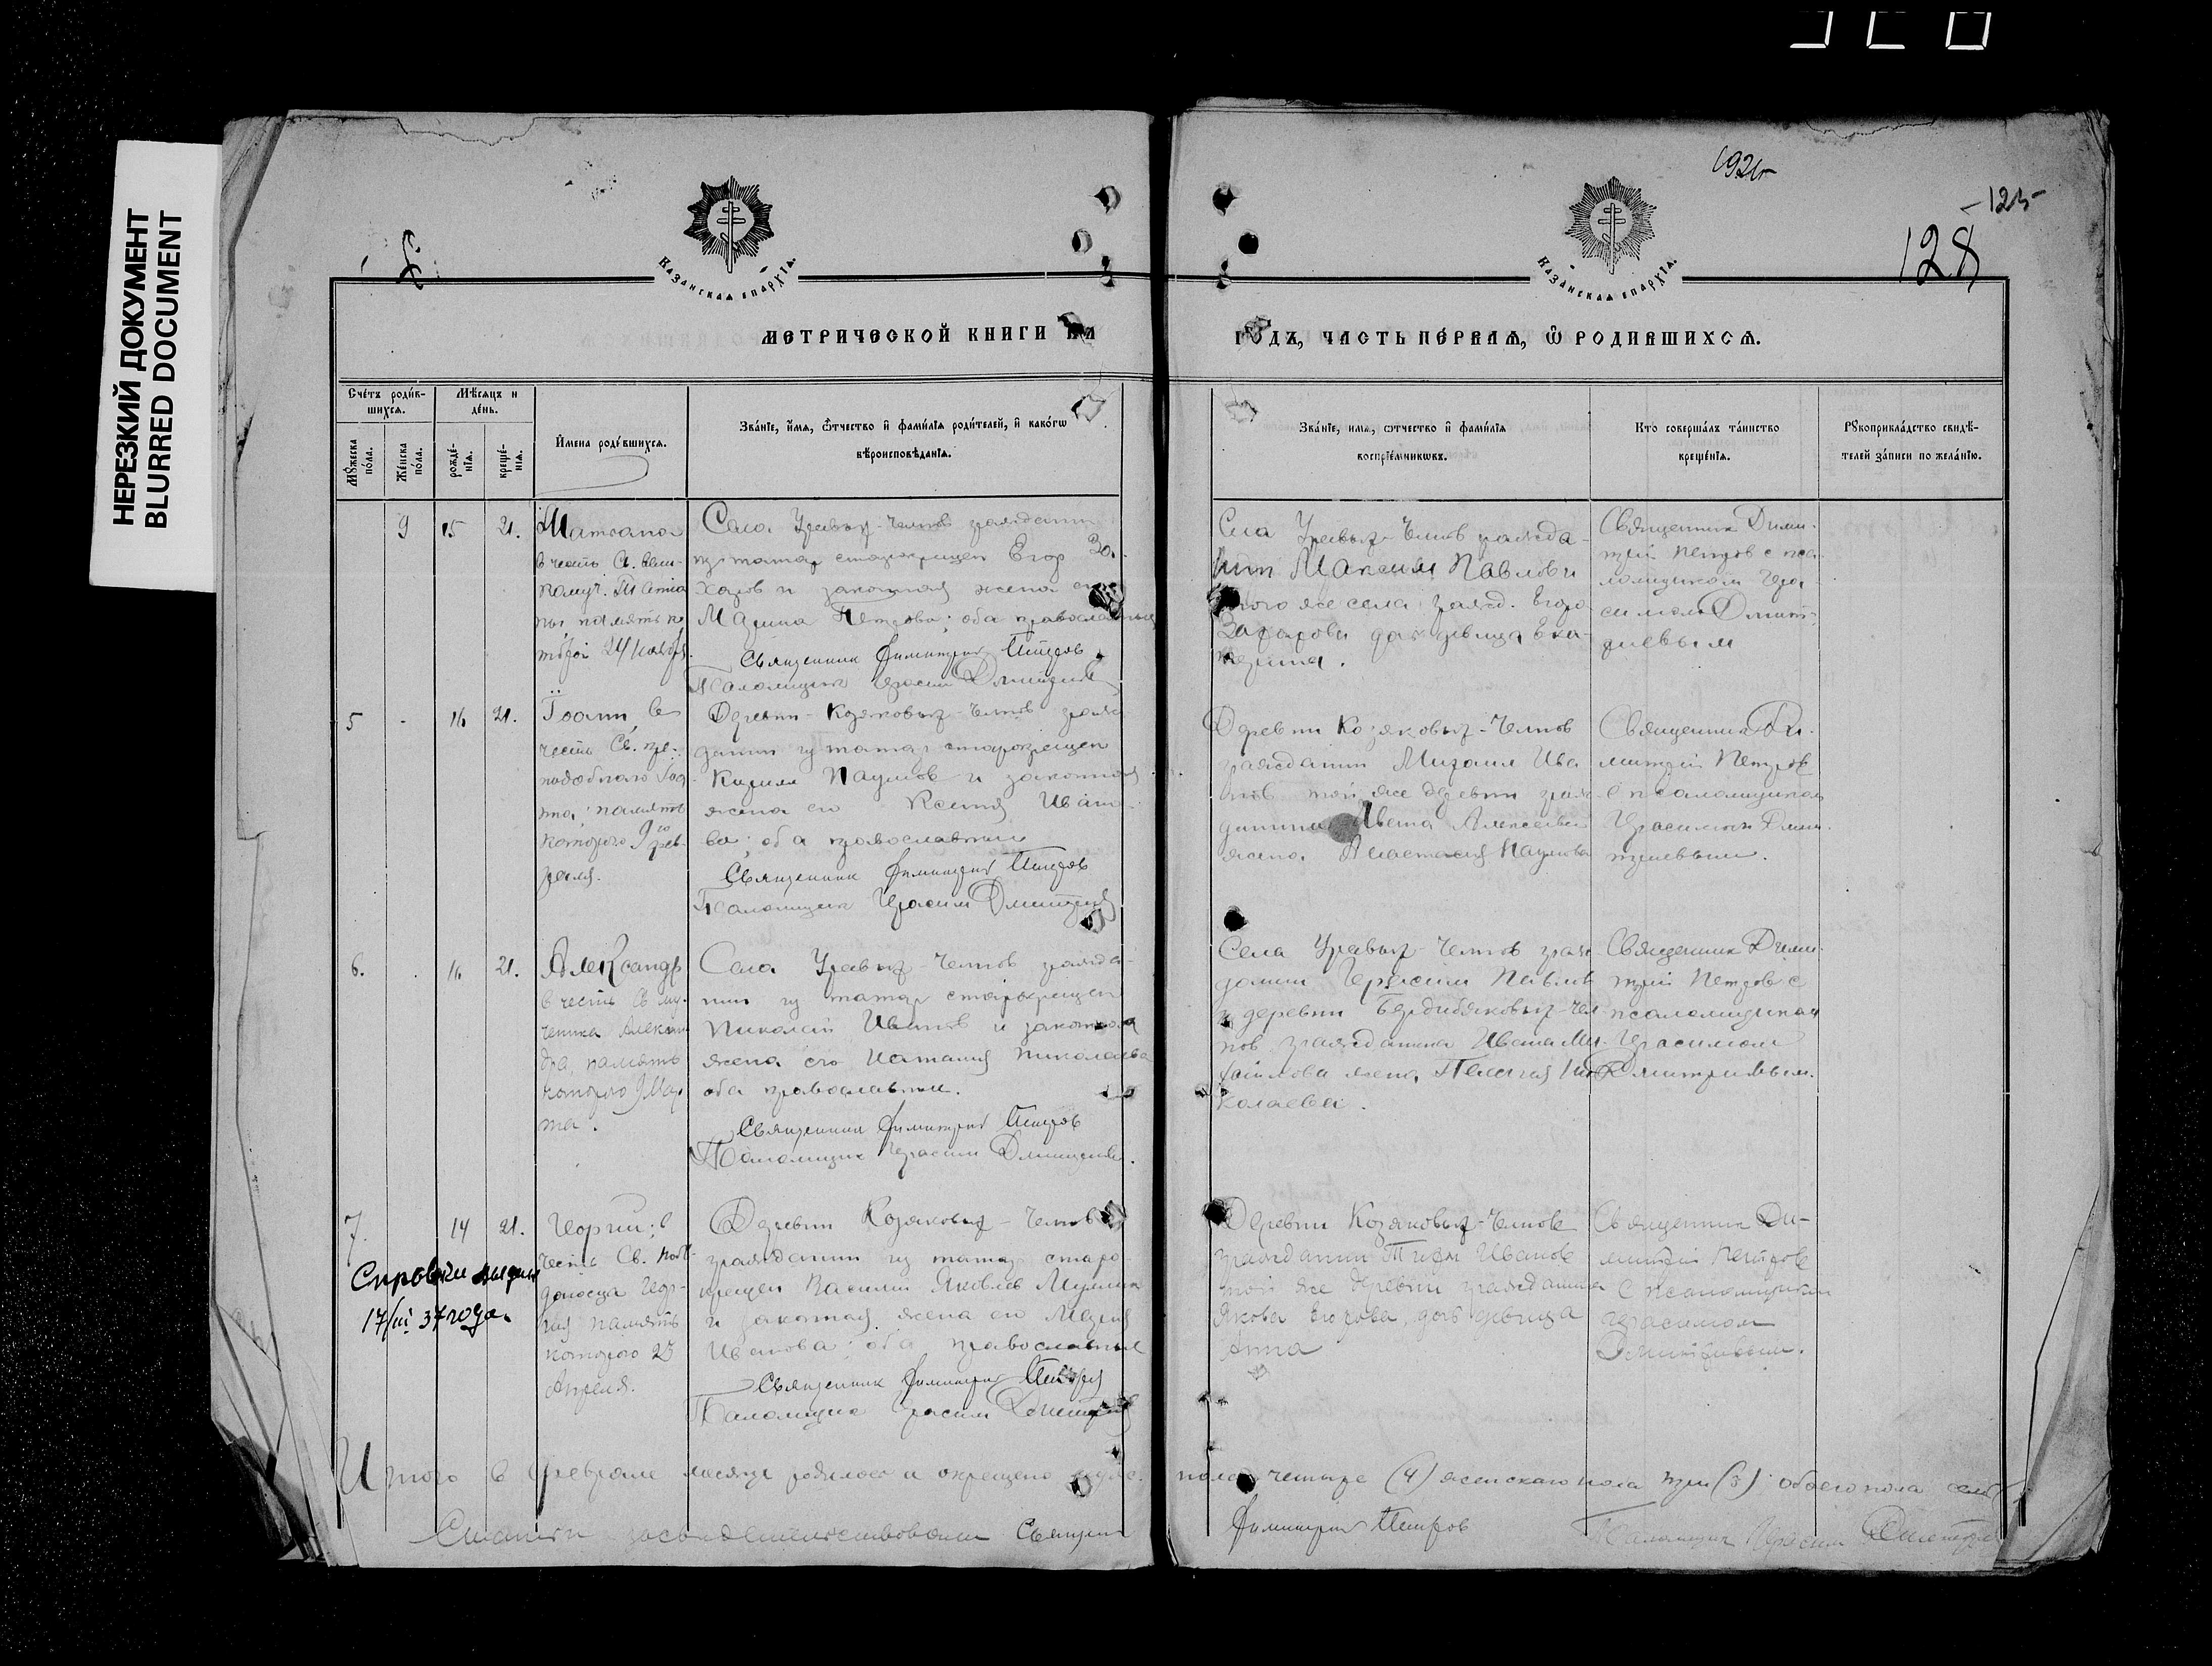 НЕРЕЗКИЙ ДОКУМЕНТ
BLURRED DOCUMENT
1921г
-125-
128
КАЗАНСКАѦ ЕПАРХІѦ.
КАЗАНСКАѦ ЕПАРХІѦ.
МЕТРИЧЕСКОЙ КНИГИ НА
ГОДЪ, ЧАСТЬ ПЕРВАѦ, Ѿ РОДИВШИХСѦ.
Счетъ родив-
шихсѧ.
Мужеска пола.
Женска пола.
Мѣсѧцъ и
день.
рожде-
ніѧ.
креще-
ніѧ.
Имена родившихсѧ.
Званіе, имѧ, ѿчество и фамиліѧ родителей, и какогѡ
вѣроисповѣданіѧ.
Званіе, имѧ, ѿчество и фамиліѧ
воспріемникѡвъ.
Кто совершалъ таинство
крещеніѧ.
Рукоприкладство свидѣ-
телей записи по желанію.
9 15 21.
в честь Св. вели-
комуч.
24 ноябр.
Села Чемов граждани
из татар старокрещен Егор За-
харов и законная жена его
Марина Петрова; оба православные
Священник Димитрий Петров
Псаломщик Герасим Дмитриев
Села Чемов гражда-
нин Максим Павлов и
того же села гражд. Егора
Захарова дочь девица Ека-
терина.
Священник Дими-
трий Петров с пса-
ломщиком Гера-
симом Дмит-
риевым
5 - 16 21.
Иоанн в
честь Св. пре-
подобного
память
которого 9го фев-
раля.
Деревни Козяковых-Чемов граж-
данин из татар старокрещен
Кирилл Наумов и законная
жена его Ксения Ивано-
ва; оба православные
Священник Димитрий Петров
Псаломщик Герасим Дмитриев
Деревни Козяковых-Челнов
гражданин Михаил Ива
нов той же деревни граж-
данина Ивана Алексеева
жена Анастасия Наумова
Священник Ди-
митрий Петров
с псаломщиком
Герасимом Дми-
триевым.
6. . 16 21.
Александр
в честь Св. му-
ченика Алексан
дра, память
которого 9 Мар
та.
Села Челнов гражда-
нин из татар старокрещен
Николай Иванов и законная
жена его Наталия Николаева
оба православные.
Священник Димитрий Петров
Псаломщик Герасим Дмитриев.
Села Челнов граж-
данин Герасим Павлов
и деревни Бердибяковых-Чел-
нов гражданина Ивана Ми-
хайлова жена Пелагия Ни-
колаева.
Священник Дими-
трий Петров с
псаломщиком
Герасимом
Дмитриевым.
7. 14 21.
Справки выдан
17/III 37 года.
Георгий; в
честь Св. побе-
доносца Геор-
гия память
которого 23
Апреля.
Деревни Козяковых-Челнов
гражданин из татар старо-
крещен Василий Яковлев
и законная жена его Мария
Иванова; оба православные
Священник Димитрий Петров
Псаломщик Герасим Дмитриев
Деревни Козяковых-Челнов
гражданин Иванов
той же деревни гражданина
Якова Егорова, дочь девица
Анна
Священник Ди-
митрий Петров
с псаломщиком
Герасимом
Дмитриевым.
Итого в феврале месяце родилось и окрещено мужс. пола четыре (4) женскаго пола три (3) обоего пола семь
засвидетельствовали Священ Димитрий Петров Псаломщик Герасим Дмитриев